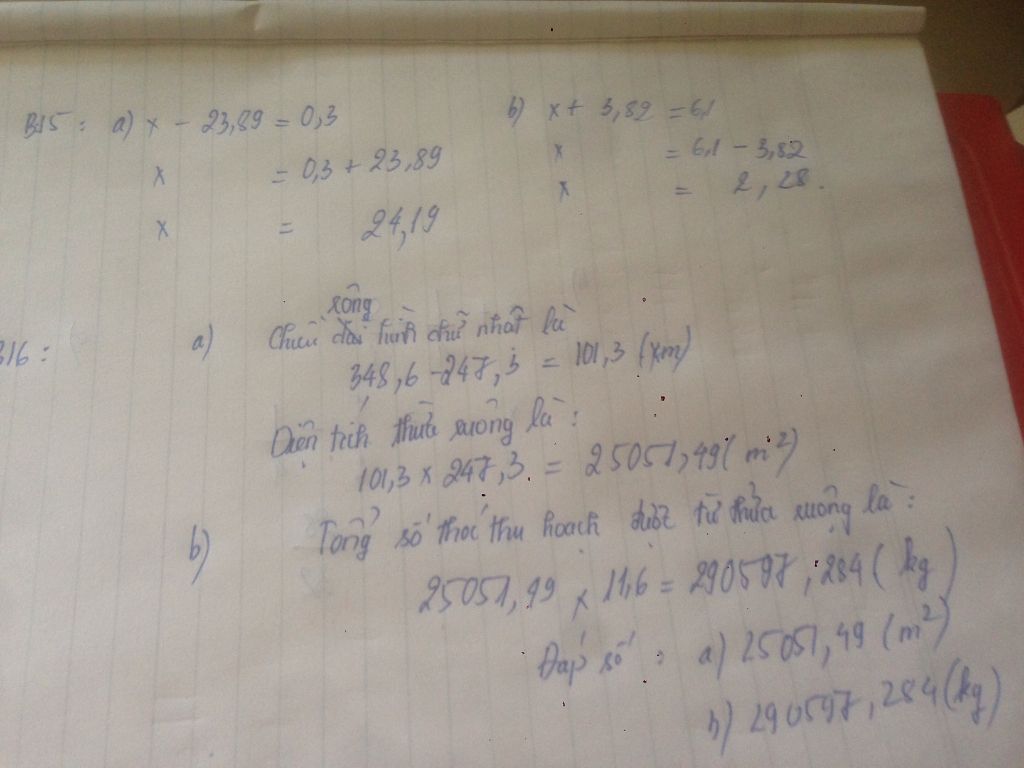 B15 : a) x - 23,89 = 0,3
x = 0,3 + 23,89
x = 24,19
b) x + 3,82 = 6,1
x = 6,1 - 3,82
x = 2,28.
B16 :
a) Chiều dài hình chữ nhật là
rộng
348,6 - 247,3 = 101,3 (xm)
Diện tích thửa ruộng là :
101,3 x 247,3 = 25051,49 ( m²)
b) Tổng số thóc thu hoạch được từ thửa ruộng là :
25051,49 x 11,6 = 290597,284 ( kg )
Đáp số : a) 25051,49 (m²)
b) 290597,284 (kg)